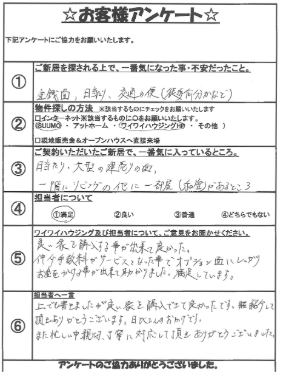 ☆お客様アンケート☆
下記アンケートにご協力をお願いいたします。
① ご新居を探される上で、一番気になった事・不安だったこと。
金銭面、日当り、交通の便(徒歩何分かなど)
② 物件探しの方法 ※該当するものにチェックをお願いいたします
□インターネット※該当するものに○をお願いいたします。
(SUUMO・アットホーム・ワイワイハウジングHP・その他)
□現地販売会&オープンハウスへ直接来場
③ ご契約いただいたご新居で、一番気に入っているところ。
日当たり、大型の道路の面、
一階にリビングの他に一部屋(和室)があるところ
④ 担当者について
①満足 ②良い ③普通 ④どちらでもない
⑤ ワイワイハウジング及び担当者について、ご意見をお聞かせください。
良い家を購入する事が出来て良かった。
仲介手数料がサービスとなった事でオプション面にしっかり
お金をかける事が出来て助かりました。満足しています。
⑥ 担当者へ一言
上でも書きましたが良い家を購入できて良かったです。
頂きありがとうございます。
また忙しい中親切、丁寧に対応して頂きありがとうございました。
アンケートのご協力ありがとうございました。